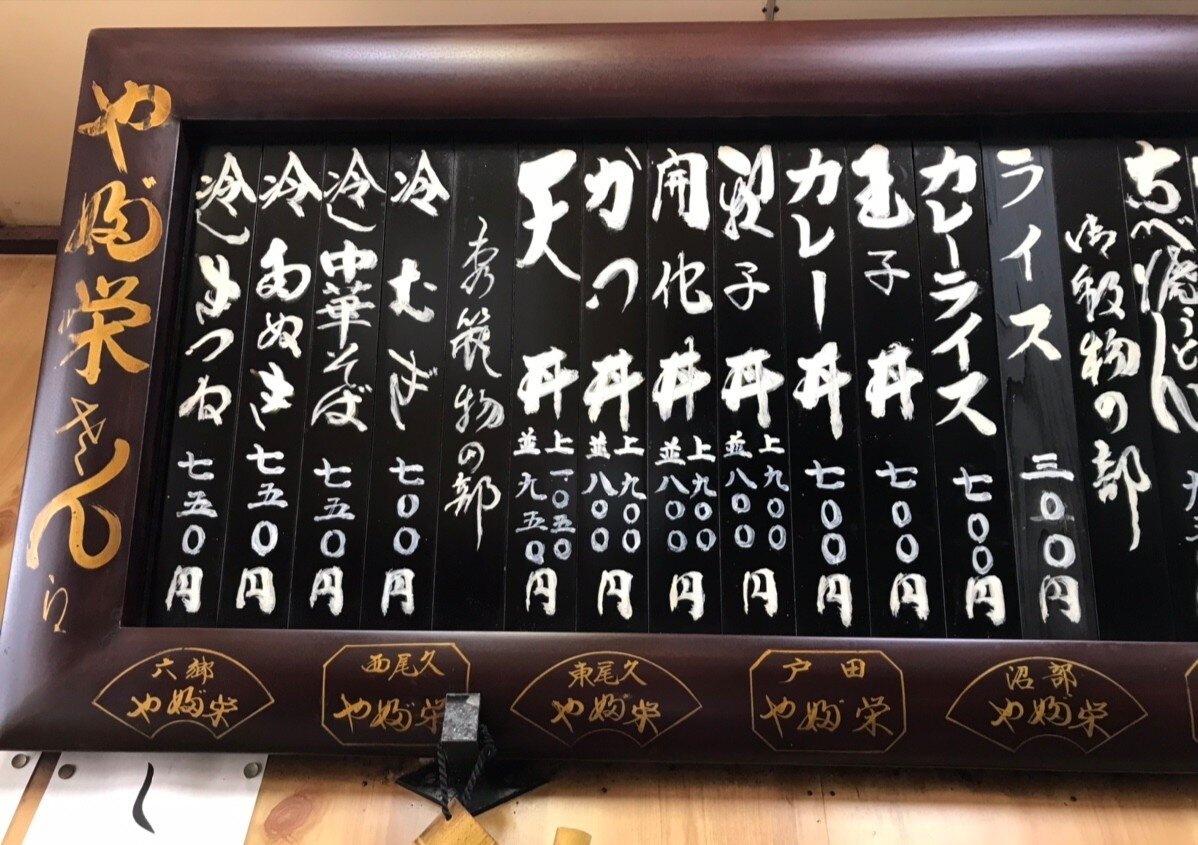 なべ焼うどん
御飯物の部
ライス 三〇〇円
カレーライス 七〇〇円
玉子丼 七〇〇円
カレー丼 七〇〇円
親子丼 上九〇〇 並八〇〇円
開化丼 上九〇〇 並八〇〇円
かつ丼 上九〇〇 並八〇〇円
天丼 上一〇五〇 並九五〇円
冷むぎ 七〇〇円
冷し中華そば 七五〇円
冷したぬき 七五〇円
冷しきつね 七五〇円
やぶ栄さん江
六郷
やぶ栄
西尾久
やぶ栄
東尾久
やぶ栄
戸田
やぶ栄
沼部
やぶ栄